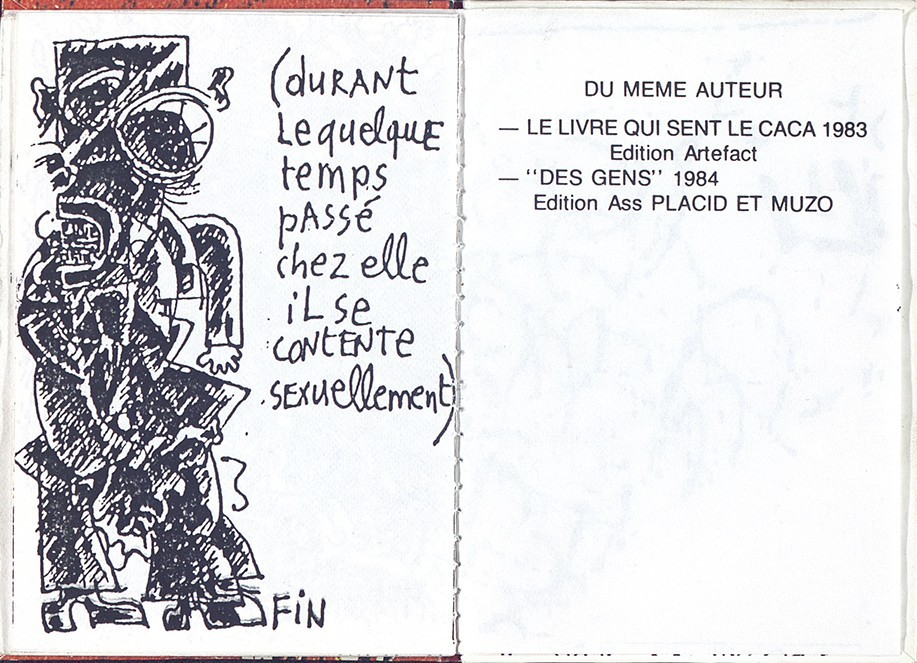 (DURANT
Le quelque
temps
pASSé
chez elle
iL se
CONTENTE
sexuellement)
FiN
DU MEME AUTEUR
— LE LIVRE QUI SENT LE CACA 1983
Edition Artefact
— "DES GENS" 1984
Edition Ass PLACID ET MUZO